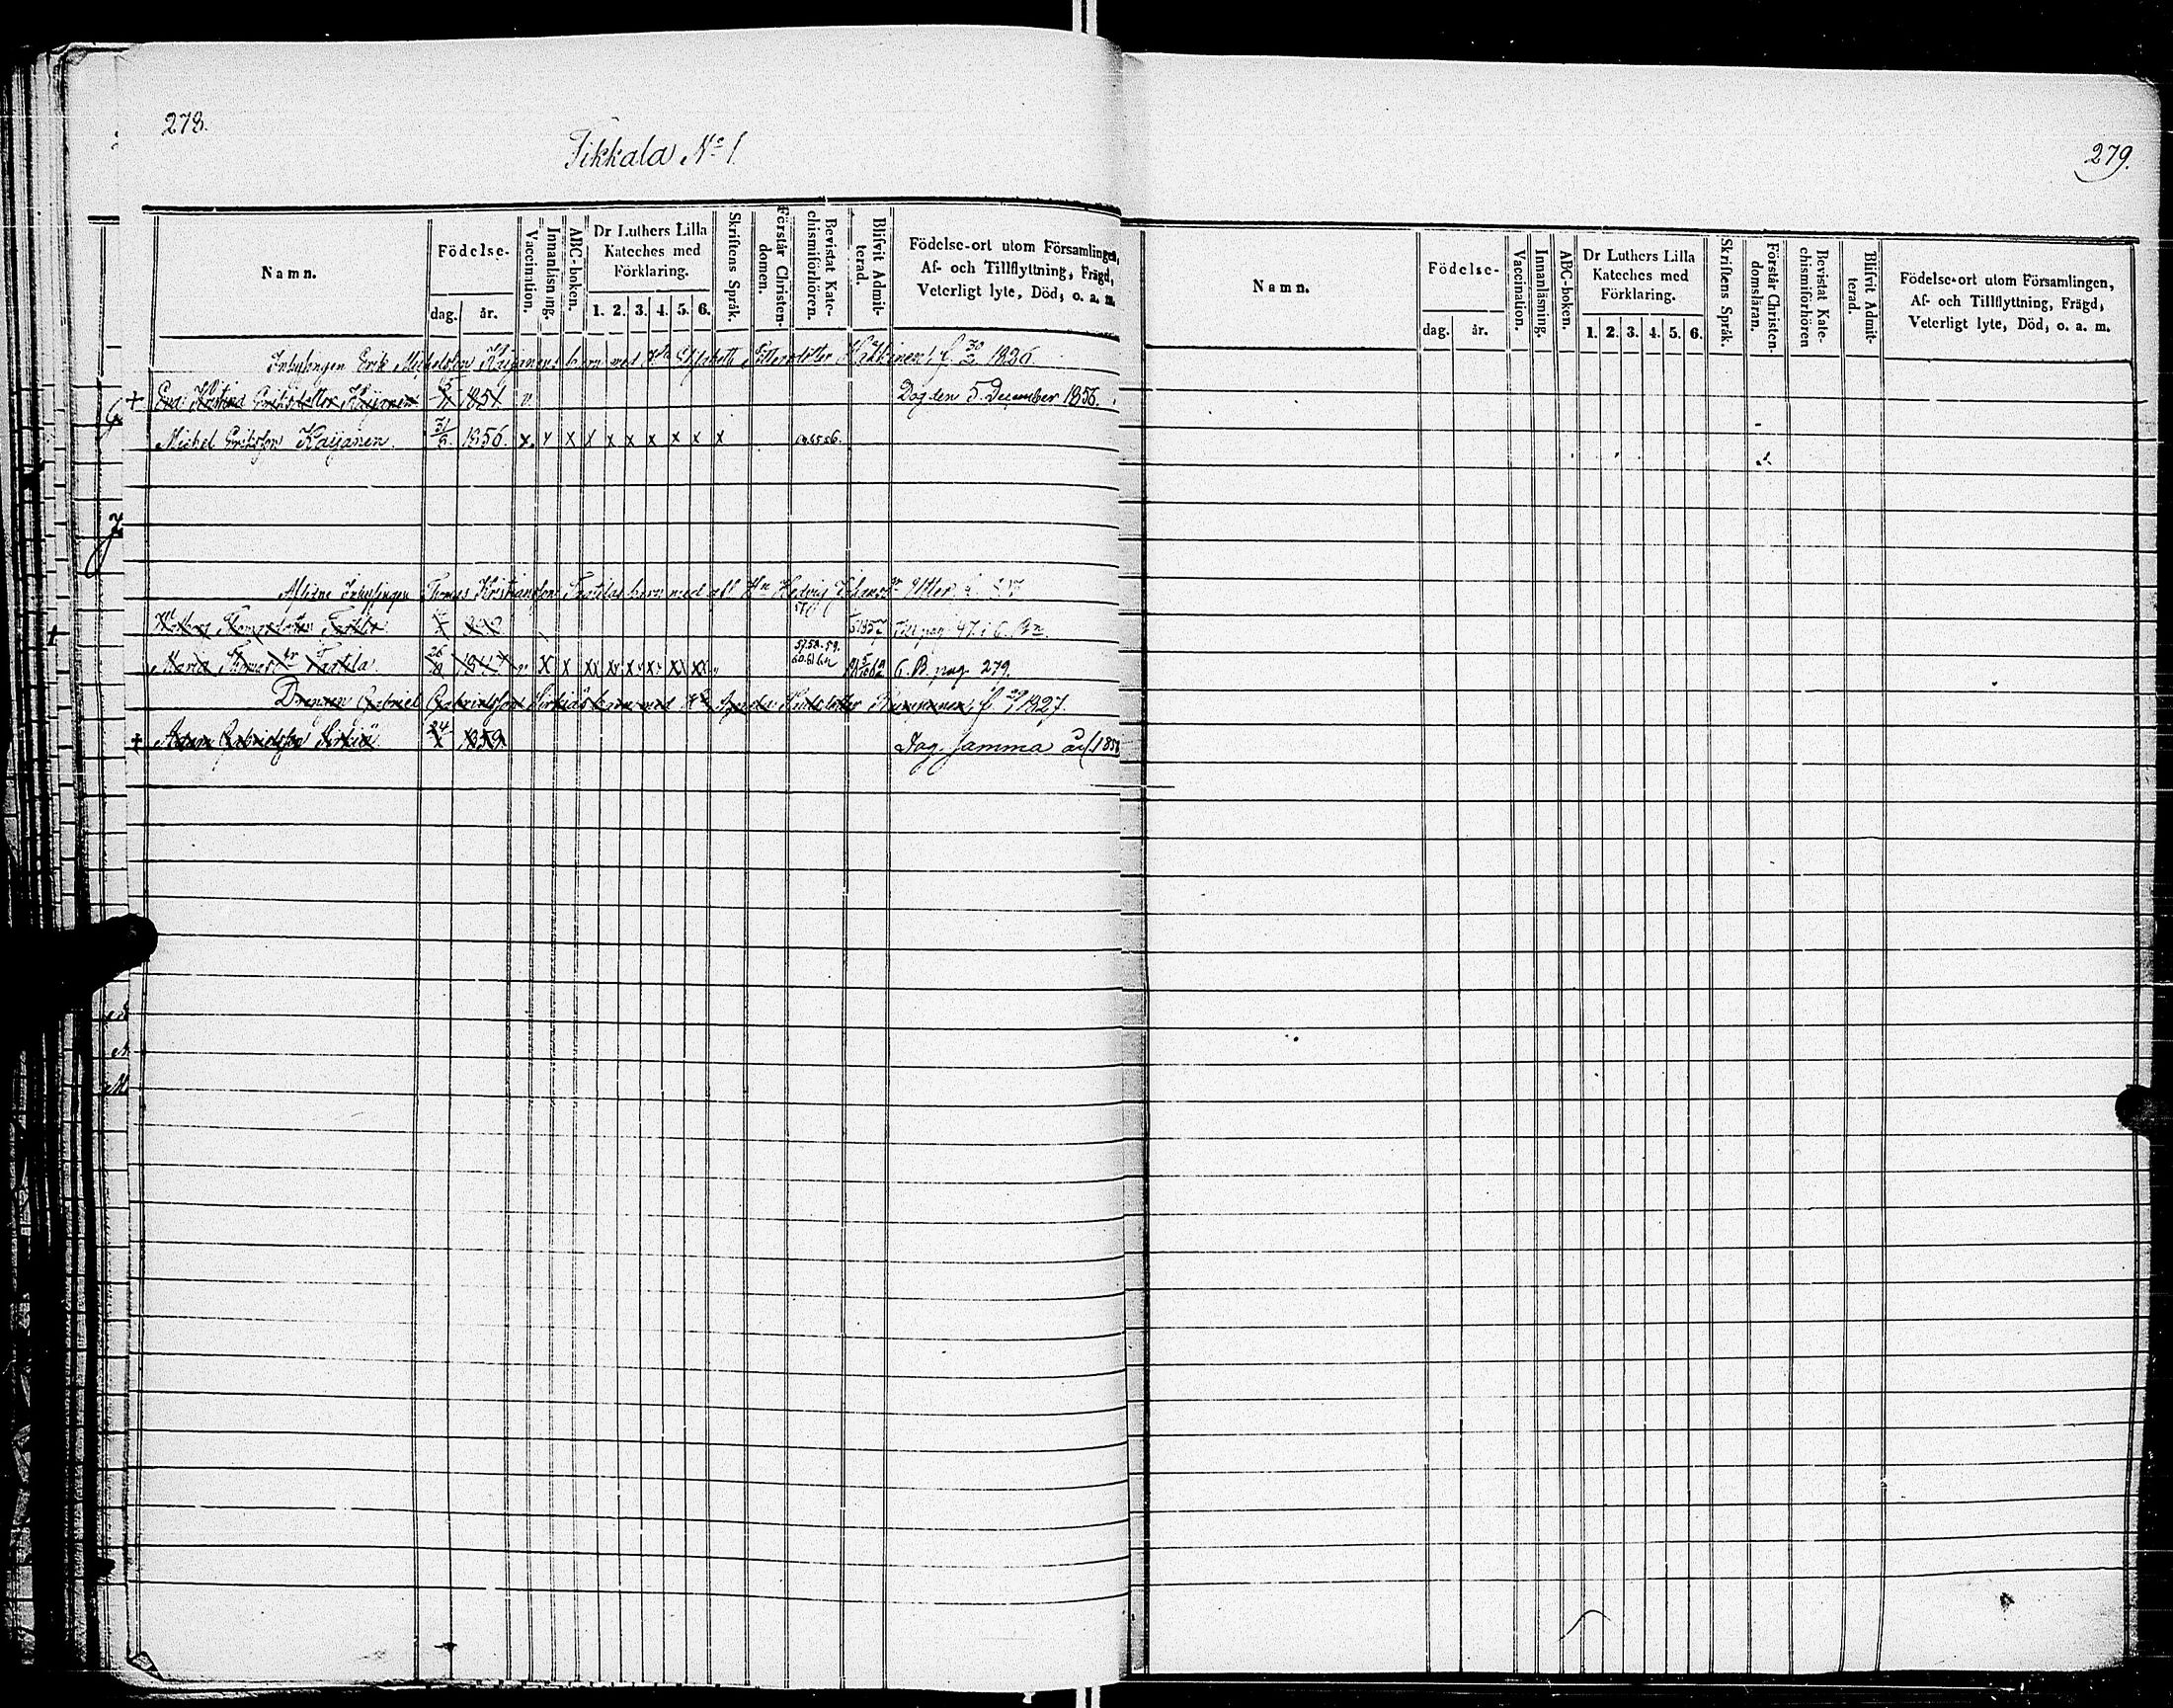 278.
Tikkala No 1
Namn.
Födelse-
dag. år.
Vaccination.
Innanläsning.
ABC-boken.
Dr Luthers Lilla
Kateches med
Förklaring.
1. 2. 3. 4. 5. 6.
Skriftens Språk.
Förstår Christen-
domen.
Bevistat Kate-
chismiförhören.
Blifvit Admit-
terad.
Födelse-ort utom Församlingen,
Af- och Tillflyttning, Frägd,
Veterligt lyte, Död, o. a. m.
Inhysingen Erik Michelsson Kaijanens barn med Elisabeth Pettersdotter Häkkinen, f. 30 1826
† Eva Kristina Eriksdotter Kaijanen 1851 v Dog den 5 December 1856.
Michel Eriksson Kaijanen. 31/8. 1856. x x x x x x x x x x
Aflidne Inhysingen Thomas Kristiansson Taatilas barn med afl. Hedvig
57 Till pag 97 i C. Bn.
57.58.59.
Maria Thomasdr Taatila. 26 v x x xx xx xx xx xx xx 60.61.62 C. B. pag 279.
Drengen Gabriel Gabrielsson Sirkiäs barn med f. 1827.
† Adam Gabrielsson Sirkiä 24 1858 Dog samma år 1858
279.
Namn.
Födelse-
dag. år.
Vaccination.
Innanläsning.
ABC-boken.
Dr Luthers Lilla
Kateches med
Förklaring.
1. 2. 3. 4. 5. 6.
Skriftens Språk.
Förstår Christen-
domsläran.
Bevistat Kate-
chismiförhören
Blifvit Admit-
terad.
Födelse-ort utom Församlingen,
Af- och Tillflyttning, Frägd,
Veterligt lyte, Död, o. a. m.